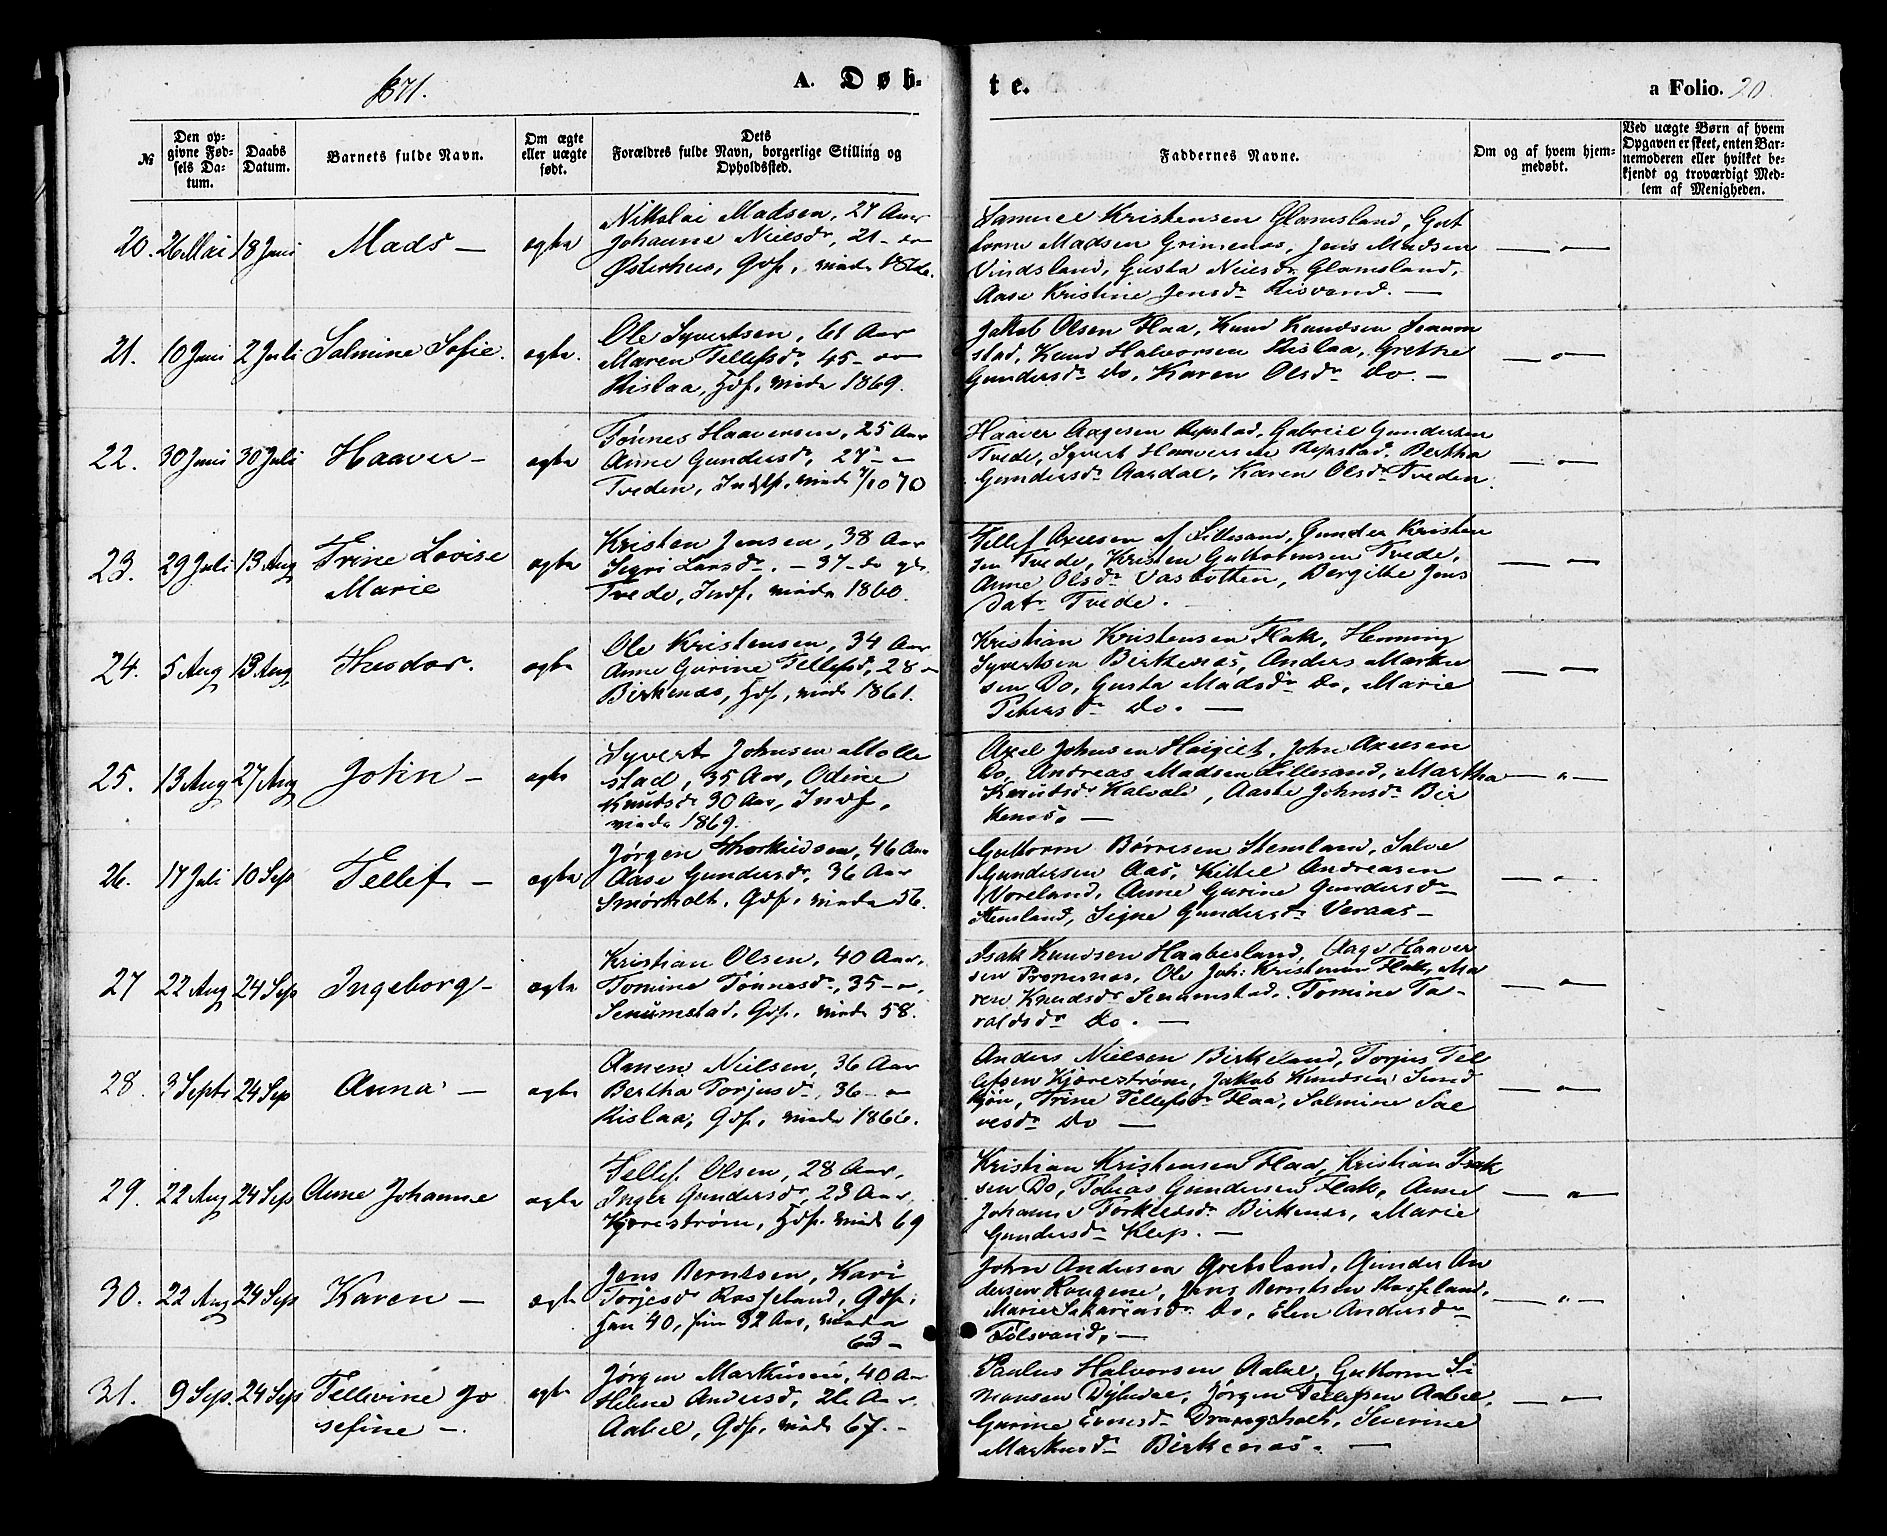 1871.
A. Døb-
te.
a Folio. 20.
№
Den op-
givne Fød-
sels Da-
tum.
Daabs
Datum.
Barnets fulde Navn.
Om ægte
eller uægte
født.
Dets
Forældres fulde Navn, borgerlige Stilling og
Opholdssted.
Faddernes Navne.
Om og af hvem hjem-
medøbt.
Ved uægte Børn af hvem
Opgaven er skeet, enten Bar-
nemoderen eller hvilket be-
kjendt og troværdigt Med-
lem af Menigheden.
20. 26 Mai 18 Juni Mads — ægte
Nikolai Madsen, 27 Aar
Johanne Nielsdr, 21 - do
Østerhus, Gdf,
Samuel Kristensen Glamsland, Gut
torm Madsen Grimenæs, Jens Madsen
Vindsland, Gusta Nielsdr Glamsland,
Aase Kristine Jensdr Risvand. —
— " —
21. 10 Juni 2 Juli Salmine Sofie. ægte.
Ole Syvertsen, 61 Aar
Maren Tellefsdr, 45 - do
Rislaa, Hdf, viede 1869.
Jakob Olsen Flaa, Knud Knudsen Senum
stad, Knud Halvorsen Rislaa, Grethe
Gundersdr Do, Karen Olsdr Do. —
— " —
22. 30 Juni 30 Juli Haaver — ægte
Tønnes Haaversen, 25 Aar
Anne Gundersdr, 27 - "
Tveden, Indf, viede 7/10 70
Haaver Aagesen Repstad, Gabriel Gundersen
Tvede, Syvert Haaversen Repstad, Bertha
Gundersdr Aardal, Karen Olsdr Tveden.
— " —
23. 29 Juli 13 Aug Trine Lovise
Marie ægte
Kristen Jensen, 38 Aar
Sigri Larsdr. - 37 - do
Tvede, Indf, viede 1860.
Tellef Axelsen af Lillesand, Gunder Kristen
sen Tvede, Kristen Guttormsen Tvede,
Anne Olsdr Vasbotten, Bergithe Jens
datr Tvede. —
— " —
24. 5 Aug 13 Aug Theodor. ægte
Ole Kristensen, 34 Aar
Anne Gurine Tellefsd, 28 "
Birkenæs, Hdf, viede 1861.
Kristian Kristensen Flak, Henning
Syvertsen Birkenæs, Anders Marku
sen Do, Gusta Madsdr Do, Marie
Petersdr Do. —
— " —
25. 13 Aug 27 Aug John — ægte
Syvert Johnsen Molle
stad, 35 Aar, Odine
Knudsdr 30 Aar, Indf,
viede 1869.
Axel Johnsen Haigilt, John Axelsen
Do, Andreas Madsen Lillesand, Martha
Knudsdr Kalvali, Aaste Johnsdr Bir
kenæs. —
— " —
26. 17 Juli 10 Sep Tellef — ægte
Jørgen Thorkildsen, 46 Aar
Aase Gundersdr, 36 Aar
Smørholt, Gdf, viede 56.
Guttorm Børresen Stemsland, Salve
Gundersen Aas, Kittel Andreasen
Voreland, Anne Gurine Gundersdr
Stemsland, Signe Gundersdr Veraas —
— " —
27 22 Aug 24 Sep Ingeborg — ægte
Kristian Olsen, 40 Aar,
Tomine Tønnesdr, 35 - ",
Senumstad, Gdf, viede 58.
Isak Knudsen Haabesland, Aage Haaver
sen, Ole Joh: Kristensen Flak, Ma
ren Knudsdr Senumstad, Tomine Ta-
raldsdr Do. —
— " —
28. 3 Septr 24 Sep Anna — ægte
Amen Nielsen, 36 Aar
Bertha Torjusdr, 36 - "
Rislaa, Gdf, viede 1866.
Anders Nielsen Birkeland, Torjus Tel
lefsen Kjørestrøm, Jakob Knudsen Sund
tjøn, Trine Tellefsdr Flaa, Salmine Sal
vesdr Do —
— " —
29. 22 Aug 24 Sep Anne Johanne ægte
Tellef Olsen, 28 Aar,
Inger Gundersdr, 23 Aar,
Kjørestrøm, Hdf. viede 69
Kristian Kristensen Flaa, Kristian Isak
sen Do, Tobias Gundersen Flak, Anne
Johanne Torkildsdr Birkenæs, Marie
Gundersdr Klep. —
— " —
30. 22 Aug 24 Sep Karen — ægte
Jens Berntsen, Kari
Torjesdr Rosseland, Gdf:
han 40, hun 32 Aar, viede
63 —
John Andersen Gretsland, Gunder An
dersen Haugene, Jens Berntsen Rosseland,
Marie Sakariasdr Do, Elen Andersdr
Tolsvand, —
— " —
31. 9 Sep. 24 Sep Tellevine Jo
sefine —. ægte
Jørgen Markussen, 40 Aar
Helene Andersd, 26 Aar,
Aabel, Gdf, viede 67. -
Paulus Halvorsen Aabel, Guttorm Si
monsen Dybedal, Jørgen Tellefsen Aabel,
Gurine Evensdr Drangsholt, Severine
Markusdr Birkenæs. —
— " —